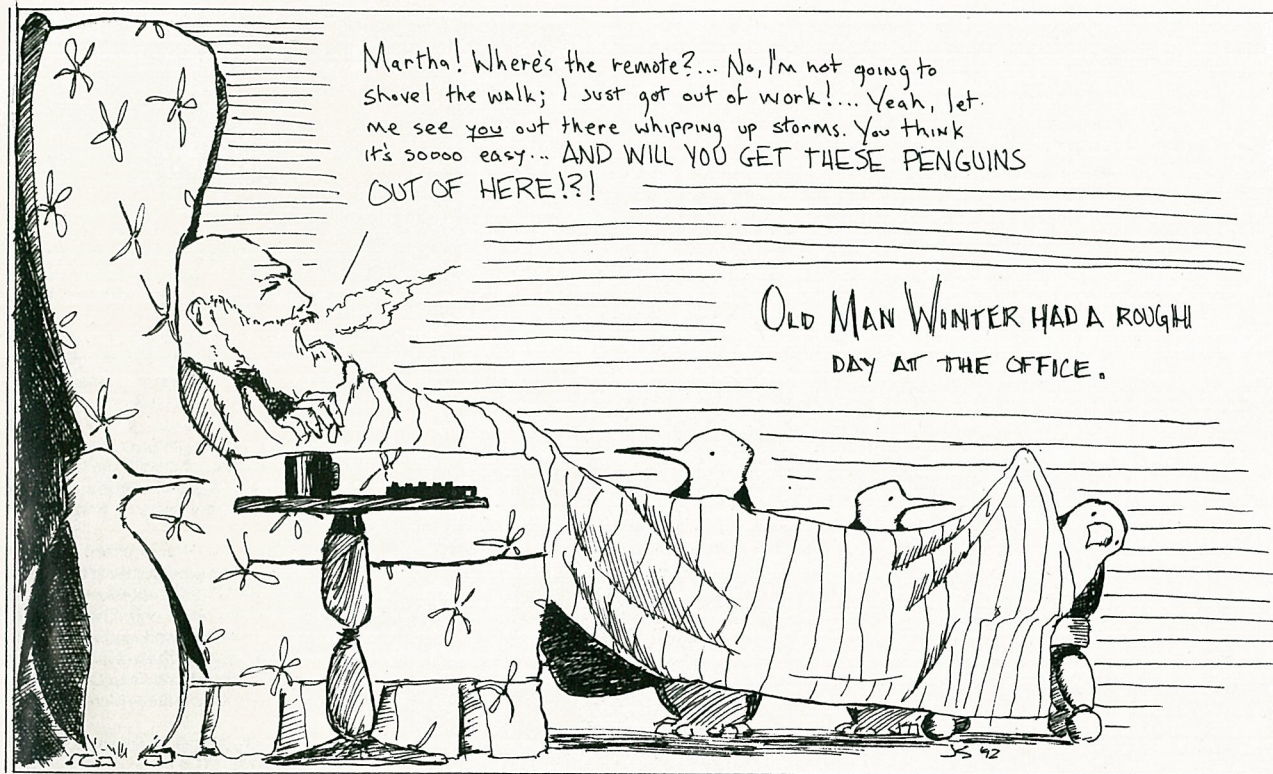 Martha! Where's the remote?... No, I'm not going to
shovel the walk; I just got out of work!... Yeah, let
me see you out there whipping up storms. You think
it's soooo easy... AND WILL YOU GET THESE PENGUINS
OUT OF HERE!?!
OLD MAN WINTER HAD A ROUGH
DAY AT THE OFFICE.
JS '92